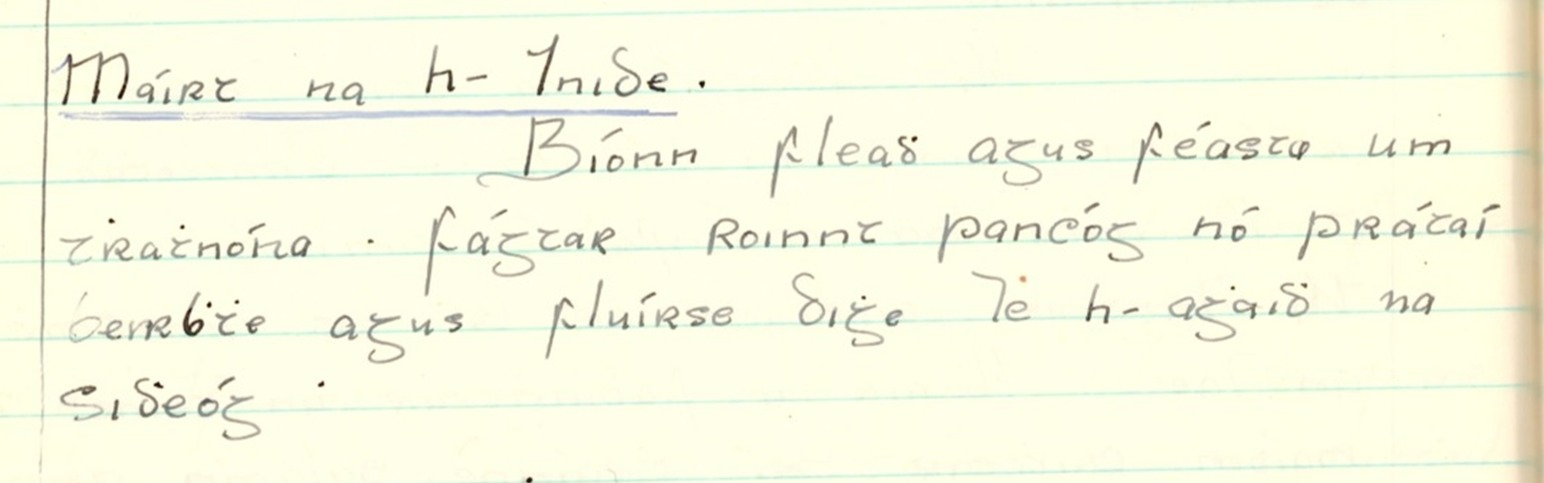 Máirt na h-Inide.
Bíonn fleaḋ agus féasta um
traṫnóna. fágtar roinnt pancóg nó prátaí
beirḃṫe agus fluírse diġe le h-aġaiḋ na
siḋeóg.